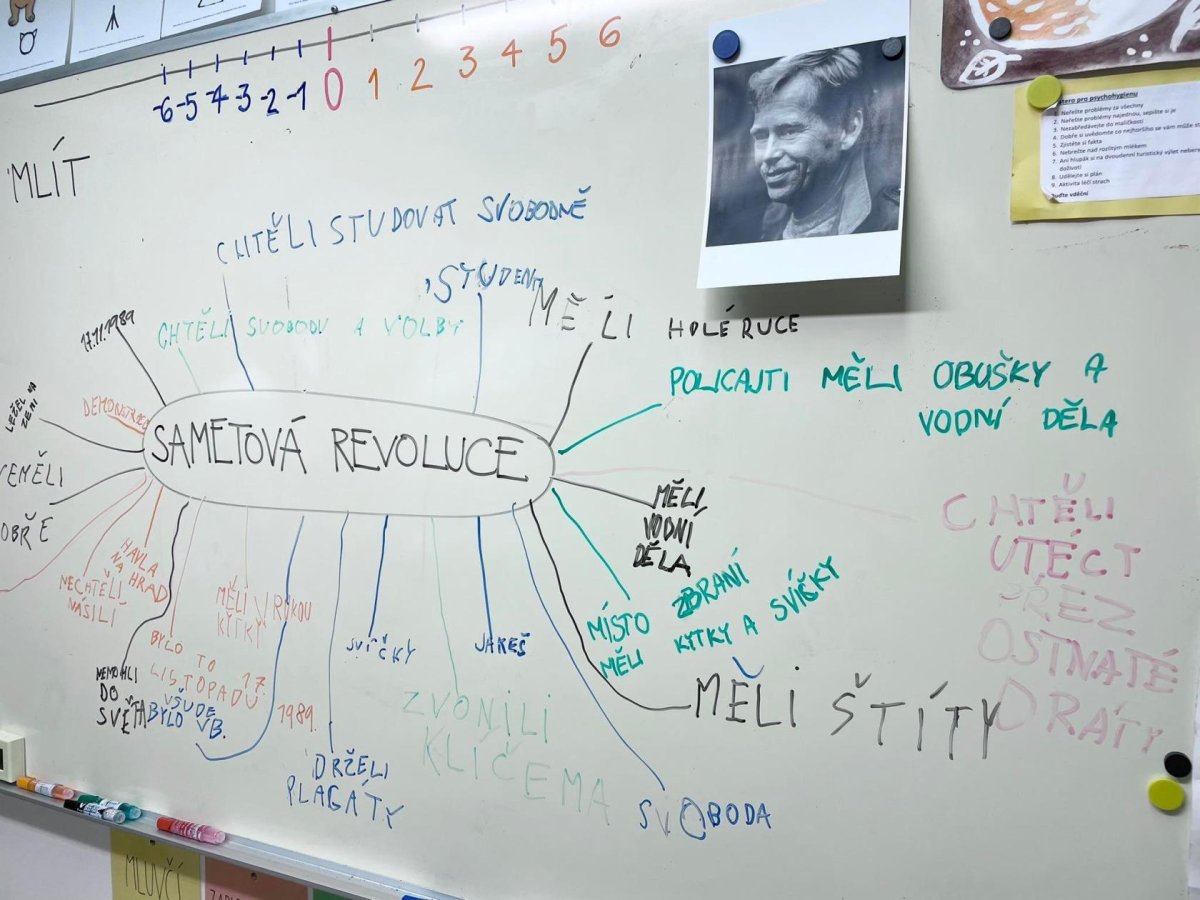 -6 -5 -4 -3 -2 -1 0 1 2 3 4 5 6
MLÍT
CHTĚLI STUDOVAT SVOBODNĚ
STUDENTI
17.11.1989
CHTĚLI SVOBODU A VOLBY
MĚLI HOLÉ RUCE
POLICAJTI MĚLI OBUŠKY A
VODNÍ DĚLA
LEŽEL NA
ZEMI
DEMONSTRACE
SAMETOVÁ REVOLUCE
NEMĚLI
DOBŘE
MĚLI
VODNÍ
DĚLA
CHTĚLI
UTÉCT
PŘEZ
OSTNATÉ
DRÁTY
HAVLA
NA HRAD
NECHTĚLI
NÁSILÍ
MĚLI V RUKOU
KYTKY
MÍSTO ZBRANÍ
MĚLI KYTKY A SVÍČKY
BYLO TO
LISTOPADU 17.
1989.
SVÍČKY
JAKEŠ
NEMOHLI
DO
SVĚTA
VŠUDE
BYLO VB.
MĚLI ŠTÍTY
ZVONILI
KLÍČEMA
DRŽELI
PLAGÁTY
SVOBODA
atero pro psychohygienu
1. Neřešte problémy za všechny
2. Neřešte problémy najednou, sepište si je
3. Nezabředávejte do maličkostí
4. Dobře si uvědomte co nejhoršího se vám může st
5. Zjistěte si fakta
6. Nebrečte nad rozlitým mlékem
7. Ani hlupák si na dvoudenní turistický výlet nebere
doživotí
8. Udělejte si plán
9. Aktivita léčí strach
Buďte vděční
MLUVČÍ